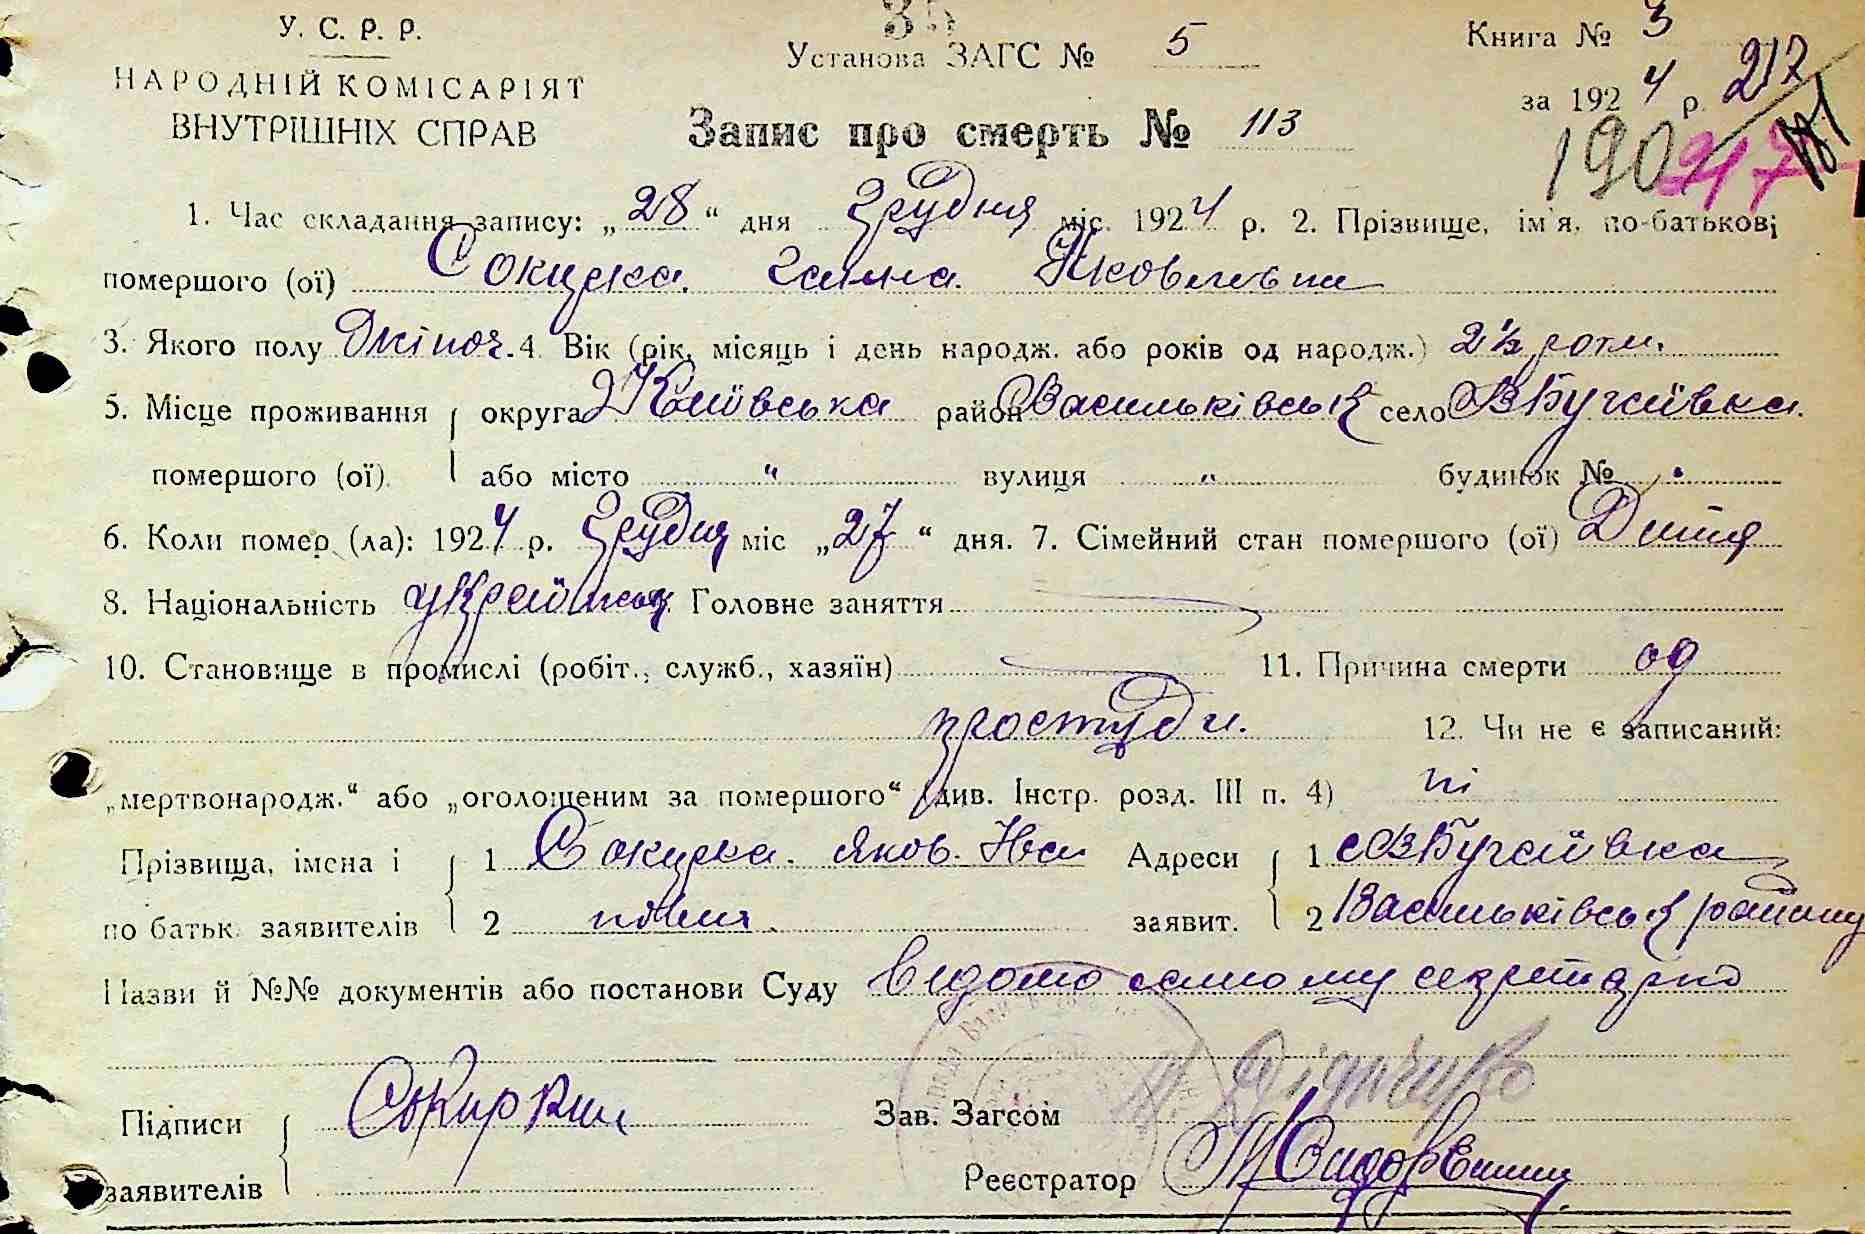 У. С. Р. Р.
НАРОДНІЙ КОМІСАРІЯТ
ВНУТРІШНІХ СПРАВ
35
Установа ЗАГС № 5
Книга № 3
за 1924 р. 217
190 217
Запис про смерть № 113
1. Час складання запису: „28“ дня Грудня міс. 1924 р. 2. Прізвище, ім'я, по-батькові
помершого (ої) Сокирка Ганна Яковлевна
3. Якого полу Жіноч. 4. Вік (рік, місяць і день народж. або років од народж.) 2½ роти.
5. Місце проживання округа Київська район Васильківськ село В Бугаївка.
помершого (ої). або місто " вулиця " будинок №
6. Коли помер (ла): 1924 р. Грудня міс „27“ дня. 7. Сімейний стан помершого (ої) Дитя
8. Національність українськ. Головне заняття
10. Становище в промислі (робіт., служб., хазяїн) 11. Причина смерти од
простуди. 12. Чи не є записаний:
„мертвонародж.“ або „оголошеним за помершого“ (див. Інстр. розд. III п. 4) ні
Прізвища, імена і 1 Сокирка. Яков. Ива Адреси 1 с В Бугаївка
по батьк. заявителів 2 нович. заявит. 2 Васильківськ району
Назви й №№ документів або постанови Суду Видомо самому секретарю
Підписи Сокирки Зав. Загсом
заявителів Реєстратор